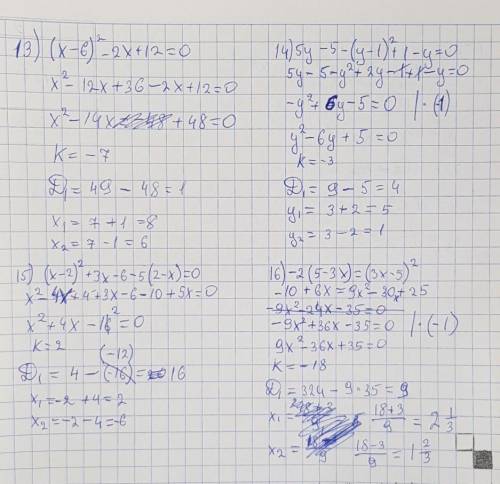 13) (x-6)² - 2x + 12 = 0
x² - 12x + 36 - 2x + 12 = 0
x² - 14x + 48 = 0
K = -7
D₁ = 49 - 48 = 1
x₁ = 7 + 1 = 8
x₂ = 7 - 1 = 6
14) 5y - 5 - (y-1)² + 1 - y = 0
5y - 5 - y² + 2y - 1 + 1 - y = 0
-y² + 6y - 5 = 0 /·(-1)
y² - 6y + 5 = 0
K = -3
D₁ = 9 - 5 = 4
y₁ = 3 + 2 = 5
y₂ = 3 - 2 = 1
15) (x-2)² + 3x - 6 - 5(2-x) = 0
x² - 4x + 4 + 3x - 6 - 10 + 5x = 0
x² + 4x - 12 = 0
K = 2
(-12)
D₁ = 4 - (-16) = 16
x₁ = -2 + 4 = 2
x₂ = -2 - 4 = -6
16) -2(5-3x) = (3x-5)²
-10 + 6x = 9x² - 30x + 25
-9x² - 24x - 35 = 0
-9x² + 36x - 35 = 0 /·(-1)
9x² - 36x + 35 = 0
K = -18
D₁ = 324 - 9·35 = 9
x₁ = (18+3)/9 = 2 1/3
x₂ = (18-3)/9 = 1 2/3